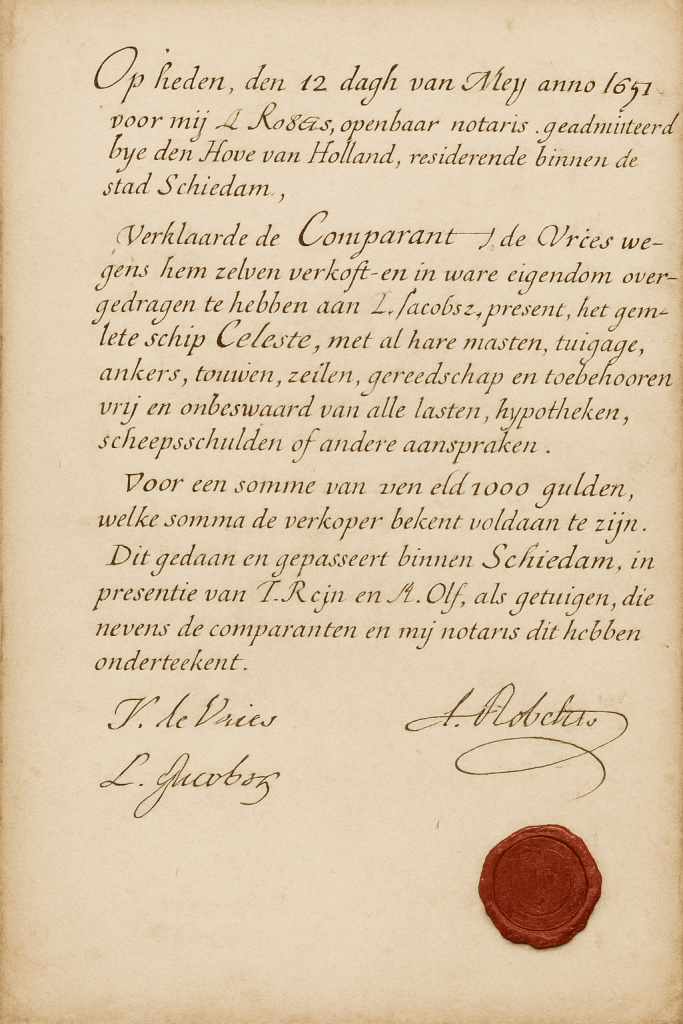 Op heden, den 12 dagh van Mey anno 1651
voor mij openbaar notaris . geadmitteerd
bye den Hove van Holland, residerende binnen de
stad Schiedam,
Verklaarde de Comparant J de Vries we-
gens hem zelven verkoft-en in ware eigendom over-
gedragen te hebben aan L. Jacobsz, present, het gem-
lete schip Celeste, met al hare masten, tuigage,
ankers, touwen, zeilen, gereedschap en toebehooren
vrij en onbeswaard van alle lasten, hypotheken,
scheepsschulden of andere aanspraken .
Voor een somme van 1000 gulden,
welke somma de verkoper bekent voldaan te zijn.
Dit gedaan en gepasseert binnen Schiedam, in
presentie van T. Rejn en A. Olf, als getuigen, die
nevens de comparanten en mij notaris dit hebben
onderteekent.
de Vries
L. Jacobsz